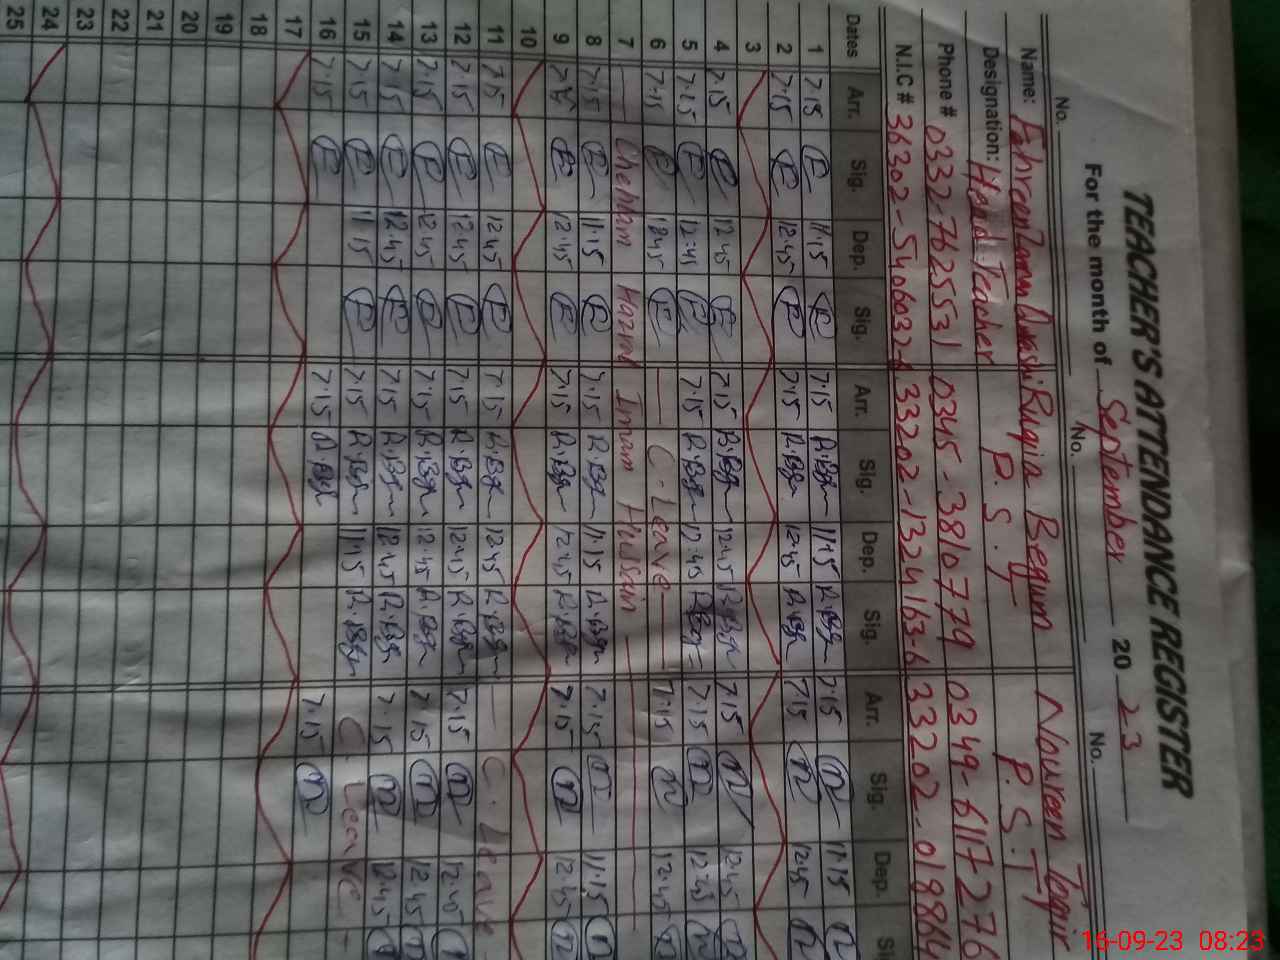 TEACHER'S ATTENDANCE REGISTER
For the month of September 2023
No. No. No.
Name: Ruqia Begum Noureen
Designation: Head Teacher P.S.T P.S.T
Phone # 0332-7625531 0345-3810779 0349-6117276
N.I.C # 36302-5406032 33202-1324163-6 33202-
Dates Arr. Sig. Dep. Sig. Arr. Sig. Dep. Sig. Arr. Sig. Dep.
1 7.15 E 11.15 E 7.15 R.Bgm 11.15 R.Bgm 7.15 n 11.15 n
2 7.15 E 12.45 E 7.15 R.Bgm 12.45 R.Bgm 7.15 n 12.45 n
3
4 7.15 E 12.45 E 7.15 R.Bgm 12.45 R.Bgm 7.15 n 12.45 n
5 7.15 E 12.45 E 7.15 R.Bgm 12.45 R.Bgm 7.15 n 12.45 n
6 7.15 E 12.45 E C.Leave 7.15 n 12.45 n
7 Chehlam Hazrat Imam Hussain
8 7.15 E 11.15 E 7.15 R.Bgm 11.15 R.Bgm 7.15 n 11.15 n
9 7.15 E 12.45 E 7.15 R.Bgm 12.45 R.Bgm 7.15 n 12.45 n
10
11 7.15 E 12.45 E 7.15 R.Bgm 12.45 R.Bgm C.Leave
12 7.15 E 12.45 E 7.15 R.Bgm 12.45 R.Bgm 7.15 n 12.45 n
13 7.15 E 12.45 E 7.15 R.Bgm 12.45 R.Bgm 7.15 n 12.45 n
14 7.15 E 12.45 E 7.15 R.Bgm 12.45 R.Bgm 7.15 n 12.45 n
15 7.15 E 11.15 E 7.15 R.Bgm 11.15 R.Bgm C.Leave
16 7.15 E 7.15 R.Bgm 7.15 n
17
18
19
20
21
22
23
24
25
16-09-23 08:23